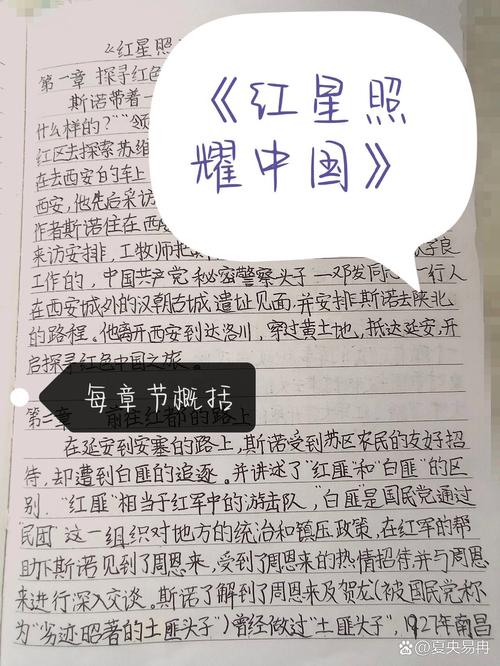 《红星照
第一章 探寻红色
斯诺带着一
什么样的？”“领
红区去探索苏维
在去西安的车上
西安，他先后采访
作者斯诺住在西
来访安排，工牧师把
工作的，中国共产党秘密警察头子—邓发同志一行人
在西安城外的汉朝古城遗址见面，并安排斯诺去陕北
的路程。他离开西安到达洛川，穿过黄土地，抵达延安，开
启探寻红色中国之旅。
《红星照
耀中国》
每章节概括
第二章 前往红都的路上
在延安到安塞的路上，斯诺受到苏区农民的友好招
待，却遭到白匪的追逐。并讲述了“红匪”和“白匪”的区
别．“红匪”相当于红军中的游击队，“白匪”是国民党通过
“民团”这一组织对地方的统治和镇压政策，在红军的帮
助下斯诺见到了周恩来，受到了周恩来的热情招待并与周恩
来进行深入交谈。斯诺了解到了周恩来及贺龙（被国民党称
为“劣迹昭著的土匪头子”）曾经做过“土匪头子”，1927年南昌
@夏央易冉